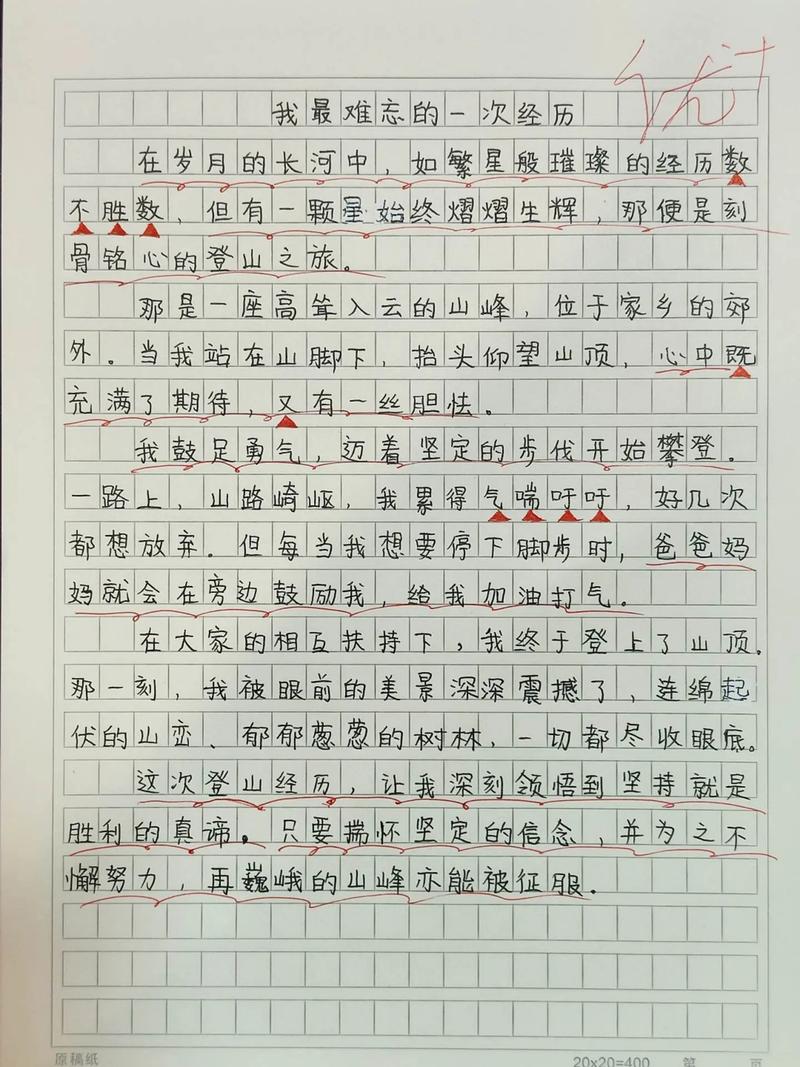 优+
我最难忘的一次经历
在岁月的长河中，如繁星般璀璨的经历数
不胜数，但有一颗星始终熠熠生辉，那便是刻
骨铭心的登山之旅。
那是一座高耸入云的山峰，位于家乡的郊
外。当我站在山脚下，抬头仰望山顶，心中既
充满了期待，又有一丝胆怯。
我鼓足勇气，迈着坚定的步伐开始攀登。
一路上，山路崎岖，我累得气喘吁吁，好几次
都想放弃。但每当我想要停下脚步时，爸爸妈
妈就会在旁边鼓励我，给我加油打气。
在大家的相互扶持下，我终于登上了山顶。
那一刻，我被眼前的美景深深震撼了，连绵起
伏的山峦、郁郁葱葱的树林，一切都尽收眼底。
这次登山经历，让我深刻领悟到坚持就是
胜利的真谛。只要揣怀坚定的信念，并为之不
懈努力，再巍峨的山峰亦能被征服。
原稿纸 20×20=400 第 页